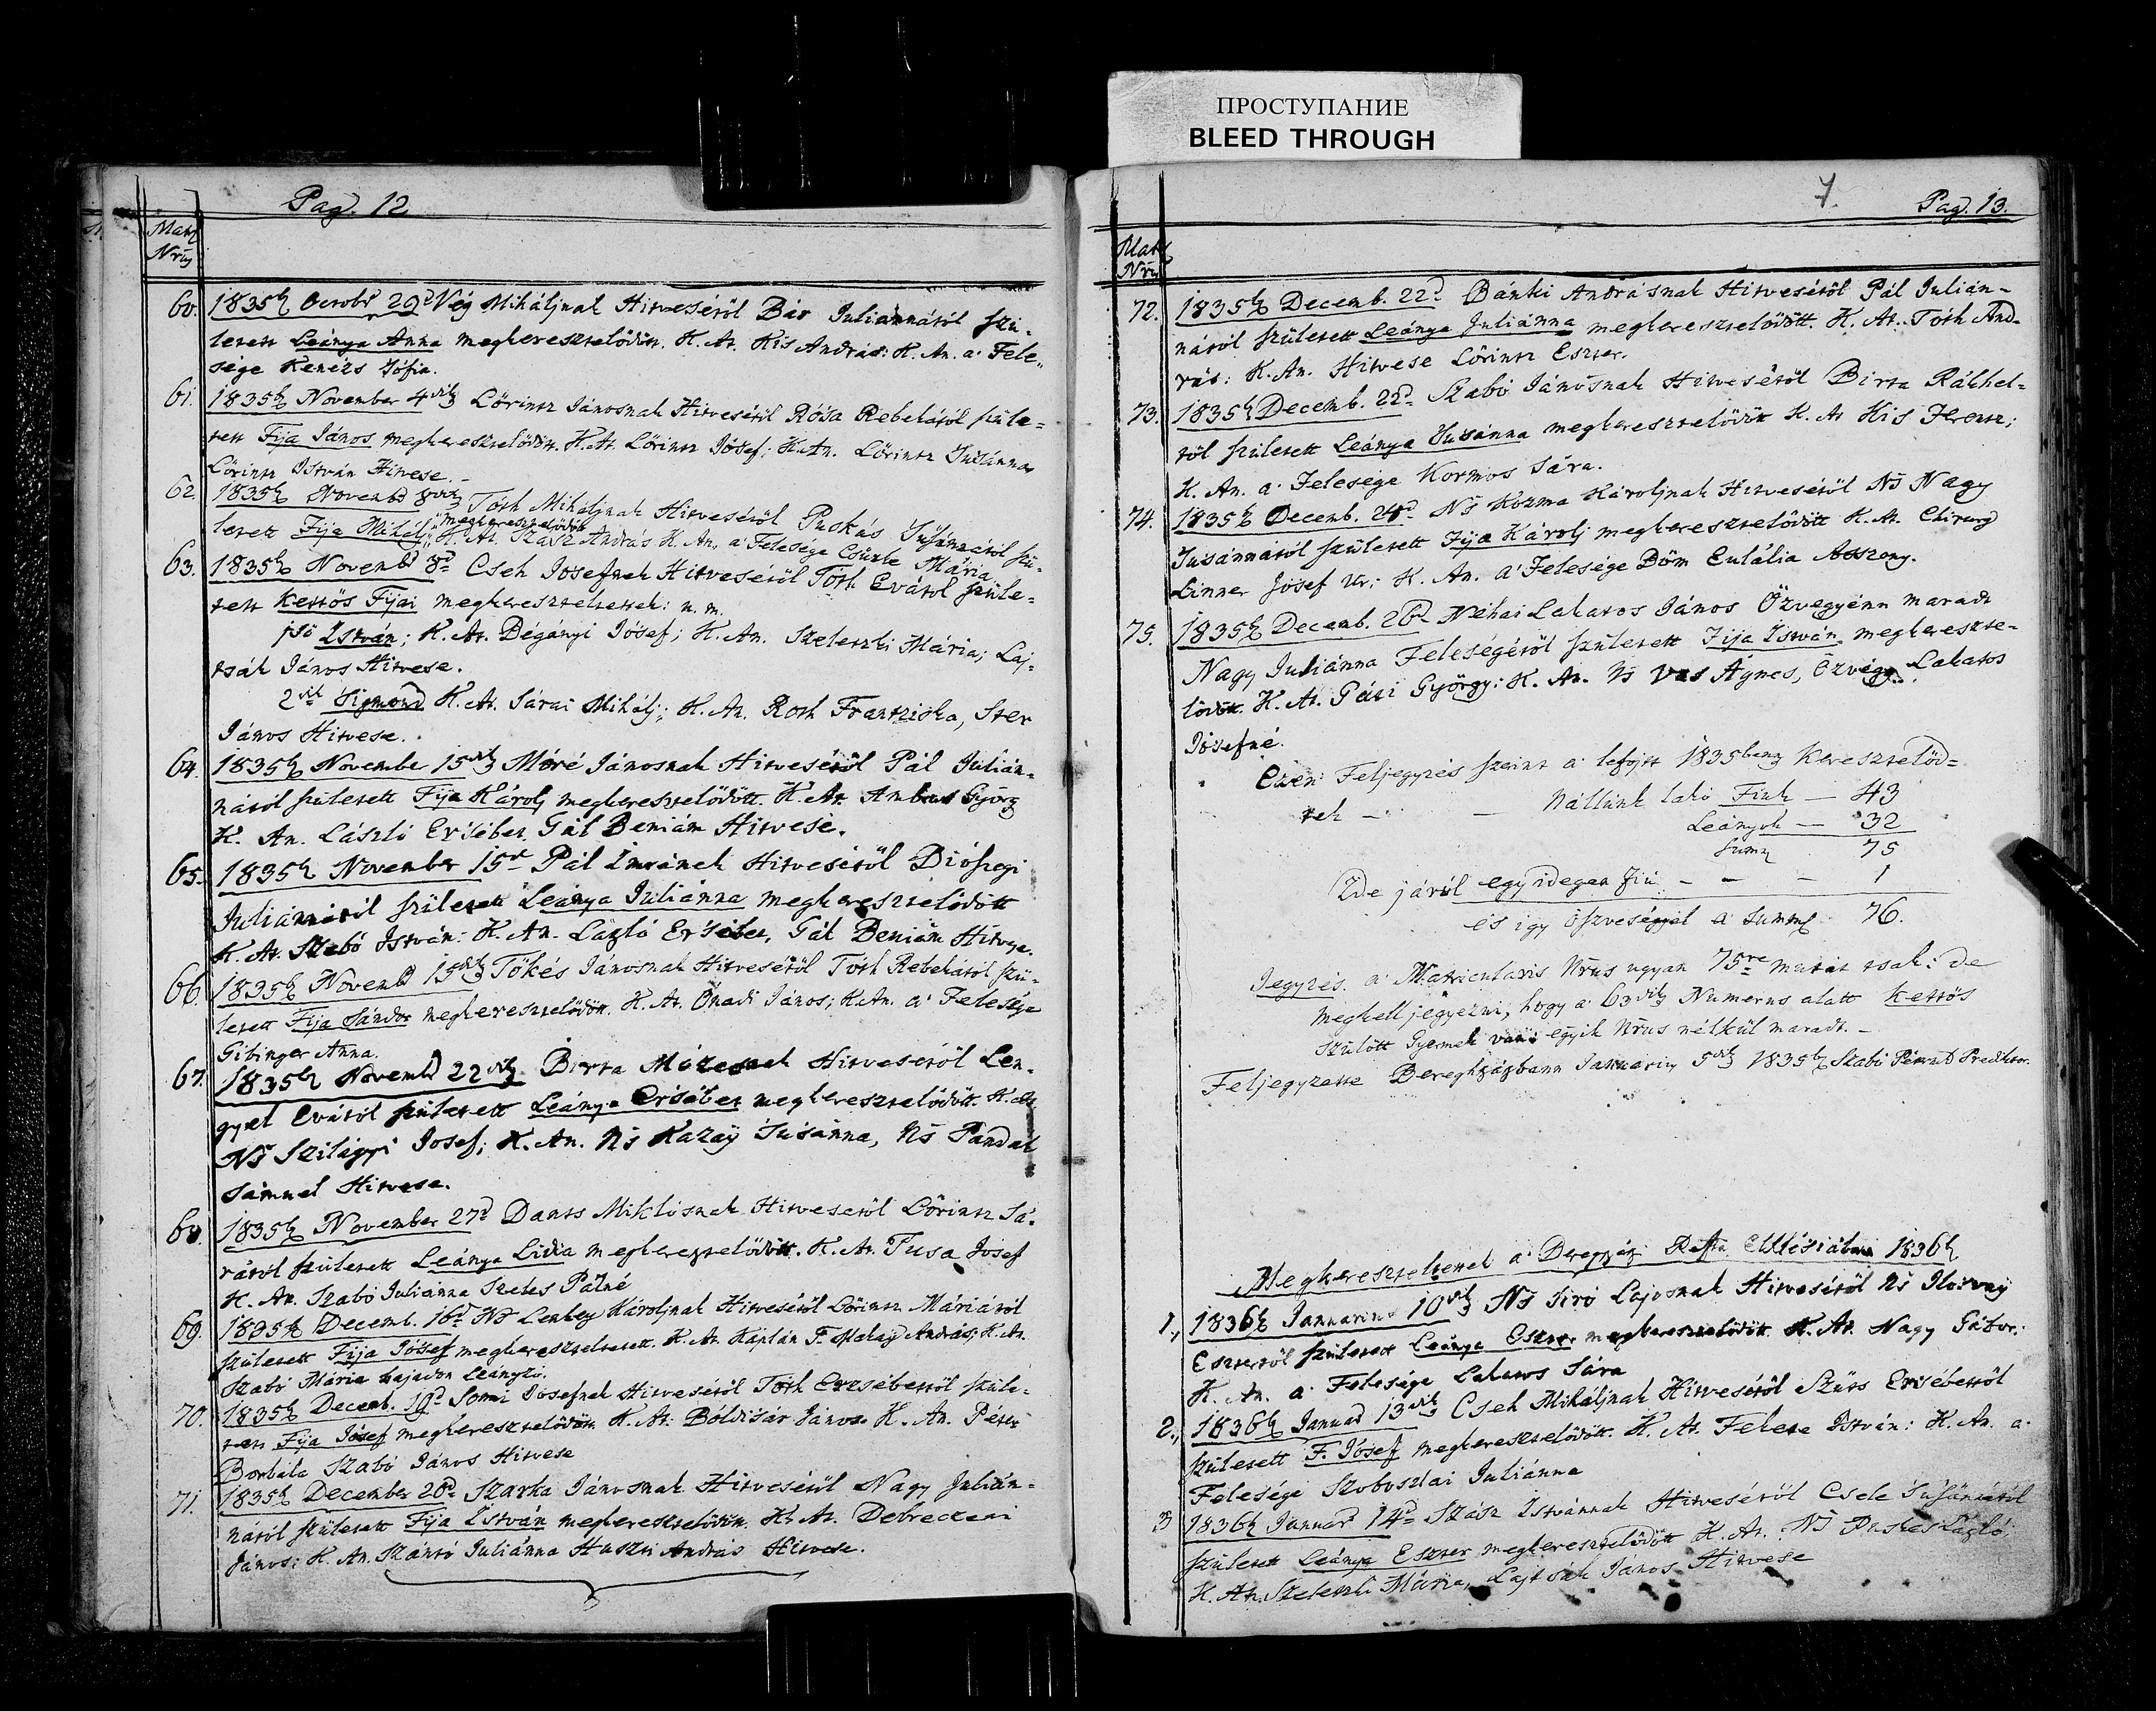 ПРОСТУПАНИЕ
BLEED THROUGH
Pag. 12
Matr
Nrus
60. 1835b Octobr 29d Vég Mihálynak Hitvesétöl Bár Juliannától szü-
letett Leánya Anna megkereszteltödött. K. At. Kis András: K. An. a' Fele-
sége Kenézs Sófia.
61. 1835b November 4dik Lörintz Jánosnak Hitvesétöl Rósa Rebekától szüle-
tett Fija János megkeresztelödött. K. At. Lörintz Jósef; K. An. Lörintz Susánna
Lörintz István Hitvese.
62. 1835b Novembr 8dik Tóth Mihálynak Hitvesétöl Puskás Susánnától szü-
megkeresztelödött
letett Fija Mihály; K. At. Szász András K. An. a' Felesége Csürke Mária
63. 1835b Novembr 8d Cseh Josefnek Hitvesétöl Tóth Evától szüle-
tett kettös Fijai megkereszteltettek: u. m.
1sö István; K. At. Dégányi Jósef; K. An. Szeletzki Mária; Laj-
tsák János Hitvese.
2dik Sigmond K. At. Sárai Mihálj; K. An. Roth Frantziska, Ster
János Hitvese.
64. 1835b Novembe 15dik Móré Jánosnak Hitvesétöl Pál Julián-
nától született Fija Károly megkeresztelödött. K. At. Ambrus Györg
K. An. László Ersébet Gál Beniám Hitvese.
65. 1835b November 15d Pál Imrének Hitvesétöl Diószegi
Juliánnától született Leánya Juliánna megkeresztelödött
K. At. Szabó István: K. An. László Ersébet, Gál Beniám Hitvese.
66. 1835b Novembr 15dik Tökés Jánosnak Hitvesétöl Tóth Rebekától szü-
letett Fija Sándor megkeresztelödött. K. At. Ónadi János; K. An. a' Felesége
Gibinger Anna.
67. 1835b Novembr 22dik Birta Mózesnek Hitvesétöl Len-
gyel Evától született Leánya Ersébet megkeresztelödött. K. At
Ns Szilágyi Josef; K. An. Ns Kazay Susánna, Ns Pandak
Sámuel Hitvese.
68. 1835b November 27d Dants Miklósnak Hitvesétöl Lörintz Sá-
rától született Leánya Lidia megkeresztelödött. K. At. Fusa Josef
K. An. Szabó Juliánna Szeles Pálné
69. 1835b Decemb. 16d Ns Lenkey Károljnak Hitvesétöl Lörintz Máriától
született Fija Jósef megkereszteltetett. K. At. Káplán T. Makay András; K. An.
Szabó Mária hajadon leányzó.
70. 1835b Decemb. 19d Somi Josefnek Hitvesétöl Tóth Erzsébettöl szüle-
tett Fija Jósef megkeresztelödött K. At. Bóldisár János. K. An. Péter
Borbála Szabó János Hitvese
71. 1835b December 20d Szarka Jánosnak Hitvesétöl Nagy Julián-
nától született Fija István megkeresztelödött. K. At. Debreczeni
János: K. An. Szántó Juliánna Huszti András Hitvese.
7.
Pag. 13.
Matr
Nrus
72. 1835b Decemb. 22d Bánki Andrásnak Hitvesétöl Pál Julián-
nától született Leánya Juliánna megkeresztelödött. K. At. Tóth And-
rás: K. An. Hitvese Lörintz Eszter.
73. 1835b Decemb. 22d Szabó Jánosnak Hitvesétöl Birta Rákhel-
töl született Leánya Susánna megkeresztelödött K. At Kis Ferentz;
K. An. a' Felesége Kormos Sára.
74. 1835b Decemb. 24d Ns Kozma Károljnak Hitvesétöl Ns Nagy
Susánnától született Fija Károlj megkeresztelödött K. At. Chirurg
Linner Josef Ur; K. An. a' Felesége Döm Eulália Asszony.
75. 1835b Decemb. 26d Néhai Lakatos János Özvegyénn maradt
Nagy Juliánna Feleségétöl született Fija István megkereszte-
lödött. K. At. Pázi György: K. An. Ns Vas Ágnes, Özvegy Lakatos
Jósefné.
Ezen Feljegyzés szerint a' lefojtt 1835benn keresztelöd-
tek - - Nállunk lakó Fiuk - 43
Leányok - 32
Summa 75
Ide járúl egy idegen fiú - - - 1
és igy öszveséggel a' Summa 76.
Jegyzés. a' Matricularis Nrus ugyan 75re mutat tsak: de
megkell jegyezni, hogy a' 63dik Numerus alatt kettös
szülött Gyermek van: egyik Nrus nélkül maradt. -
Feljegyzette Bereghszászbann Januarius 5dik 1835b Szabó Predikátor.
Megkereszteltettek a' Bereghszászi Refta Ekklésiában 1836b
1., 1836b Januarius 10dik Ns Biró Lajosnak Hitvesétöl Ns Ilosvay
Esztertöl született Leánya Eszter megkeresztelödött. K. At. Nagy Gábor:
K. An. a' Felesége Lakatos Sára
2., 1836b Januar 13dik Cseh Mihálynak Hitvesétöl Szüts Ersébettöl
született F. Jósef megkeresztelödött. K. At. Fekete István: K. An. a'
Felesége Szoboszlai Juliánna
3 1836b Januar 14d Szász Istvánnak Hitvesétöl Csele Susánnától
született Leánya Eszter megkeresztelödött K. At. Ns Puskás László;
K. An. Szeletzki Mária, Lajtsák János Hitvese